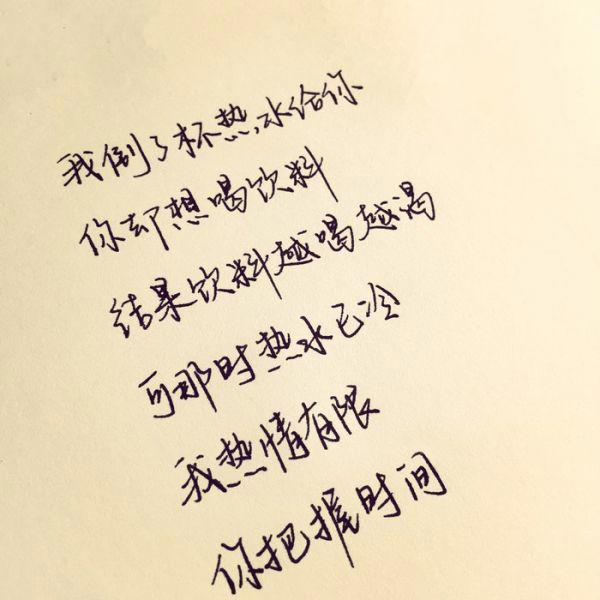 我倒了杯热水给你
你却想喝饮料
结果饮料越喝越渴
可那时热水已冷
我热情有限
你把握时间